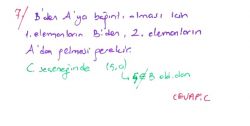 7) B'den A'ya bağıntı olması için
1. elemanların B'den, 2. elemanların
A'dan gelmesi gerekir.
C seçeneğinde (5,a)
↳ 5 ∉ B old.dan
CEVAP: C